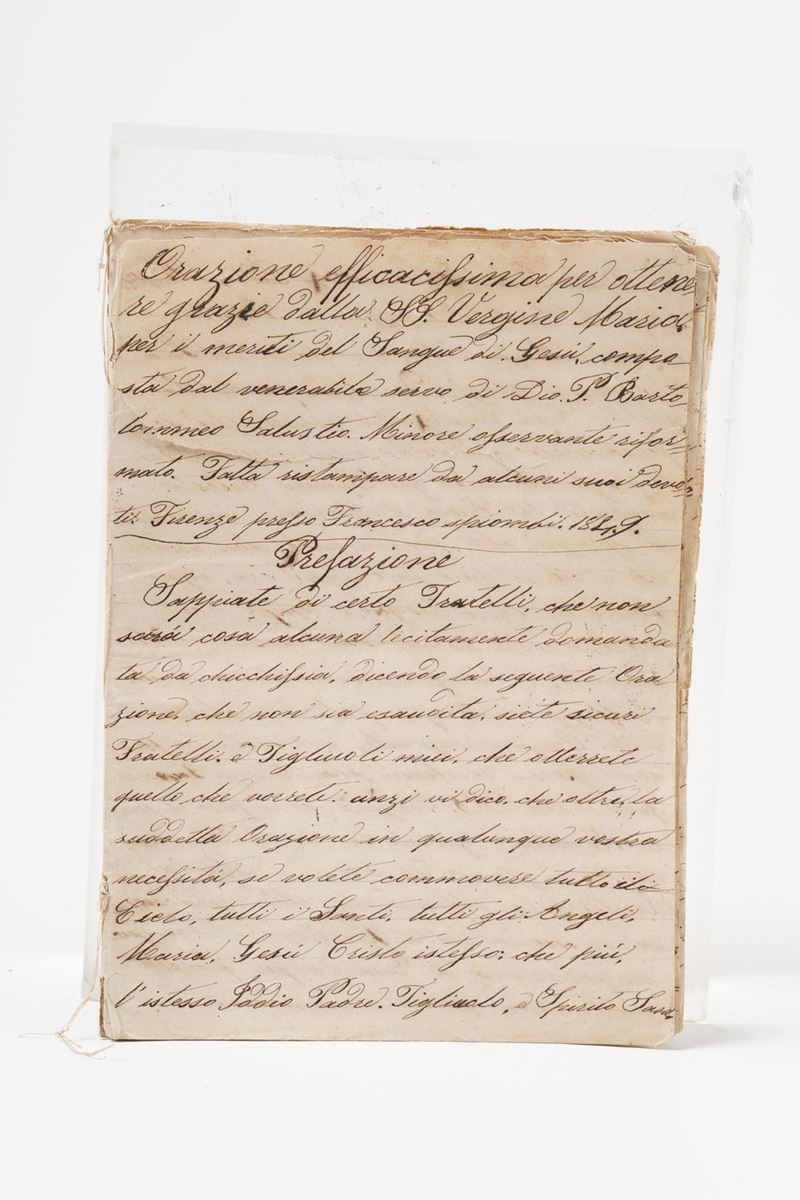 Orazione efficacissima per ottene
re grazie dalla SS. Vergine Maria.
per i meriti del Sangue di Gesù. compo
sta dal venerabile servo di Dio. P. Barto=
lommeo Salustio. Minore osservante rifor=
mato. Fatta ristampare da alcuni suoi devo=
ti: Firenze presso Francesco spiombi. 1849.
Prefazione
Sappiate di certo Fratelli, che non
sarà cosa alcuna lecitamente domanda
ta da chicchissia, dicendo la seguente Ora
zione, che non sia esaudita. siete sicuri
Fratelli. e Figliuoli miei. che otterrete
quello che vorrete: anzi vi dico, che oltre la
suddetta Orazione in qualunque vostra
necessità, se volete commovere tutto il
Cielo, tutti i Santi. tutti gli Angeli.
Maria, Gesù Cristo istesso: che più,
l'istesso Iddio Padre. Figliuolo, e Spirito San